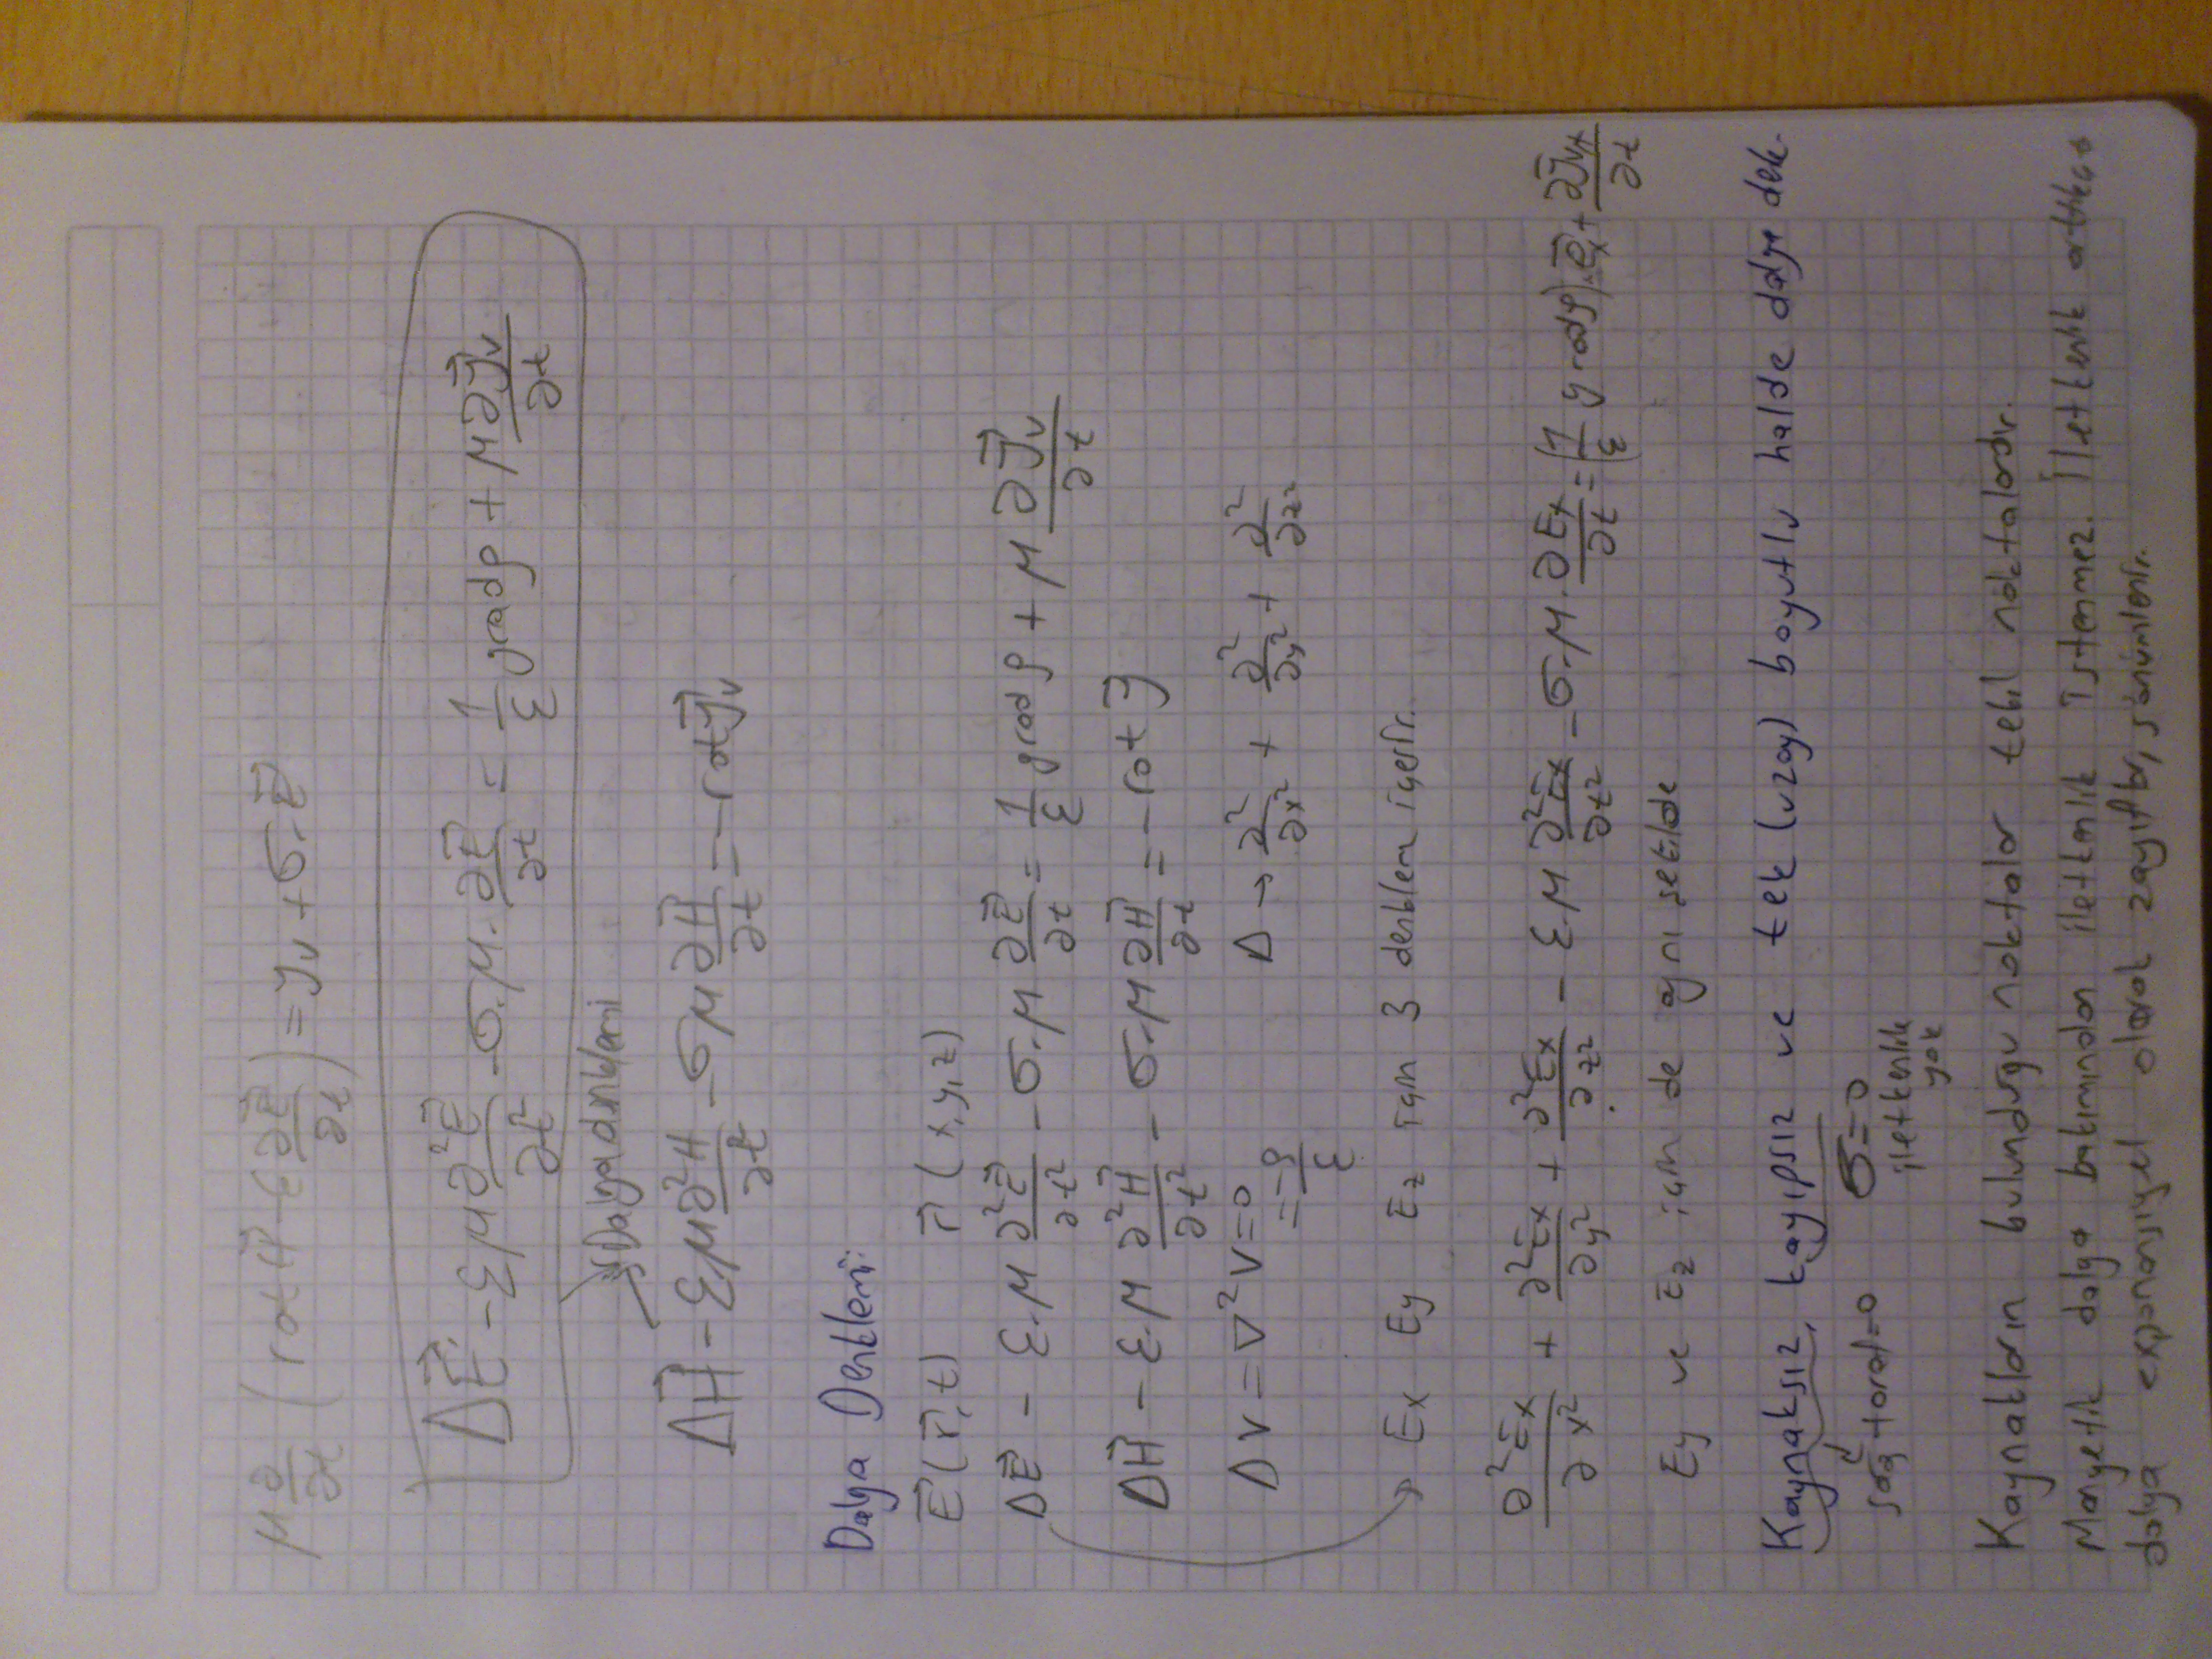 μ ∂/∂t (rot H⃗ - ε ∂E⃗/∂t) = J⃗v + σ·E⃗
ΔE⃗ - εμ ∂²E⃗/∂t² - σ·μ· ∂E⃗/∂t = 1/ε gradρ + μ ∂J⃗v/∂t
Dalga denklemi
ΔH⃗ - εμ ∂²H/∂t² - σμ ∂H⃗/∂t = -rot J⃗v
Dalga Denklemi:
E⃗(r⃗,t) r⃗(x,y,z)
ΔE⃗ - ε·μ ∂²E⃗/∂t² - σ·μ ∂E⃗/∂t = 1/ε grad ρ + μ ∂J⃗v/∂t
ΔH⃗ - ε·μ ∂²H⃗/∂t² - σ·μ ∂H⃗/∂t = -rot J⃗
ΔV = ∇²V = 0 Δ → ∂²/∂x² + ∂²/∂y² + ∂²/∂z²
= -ρ/ε
→ Ex Ey Ez için 3 denklem içerir.
∂²Ex/∂x² + ∂²Ex/∂y² + ∂²Ex/∂z² - ε·μ ∂²Ex/∂t² - σ·μ· ∂Ex/∂t = (1/ε gradρ)·e⃗x + ∂J⃗vx/∂t
Ey ve Ez için de aynı şekilde
Kaynaksız, kayıpsız ve tek (uzay) boyutlu halde dalga dek.
sağ taraf=0 σ=0
iletkenlik
yok
Kaynakların bulunduğu noktalar tekil noktalardır.
Manyetik dalga bakımından iletkenlik istenmez. İletkenlik arttıkça
dalga exponansiyel olarak zayıflar, sönümlenir.